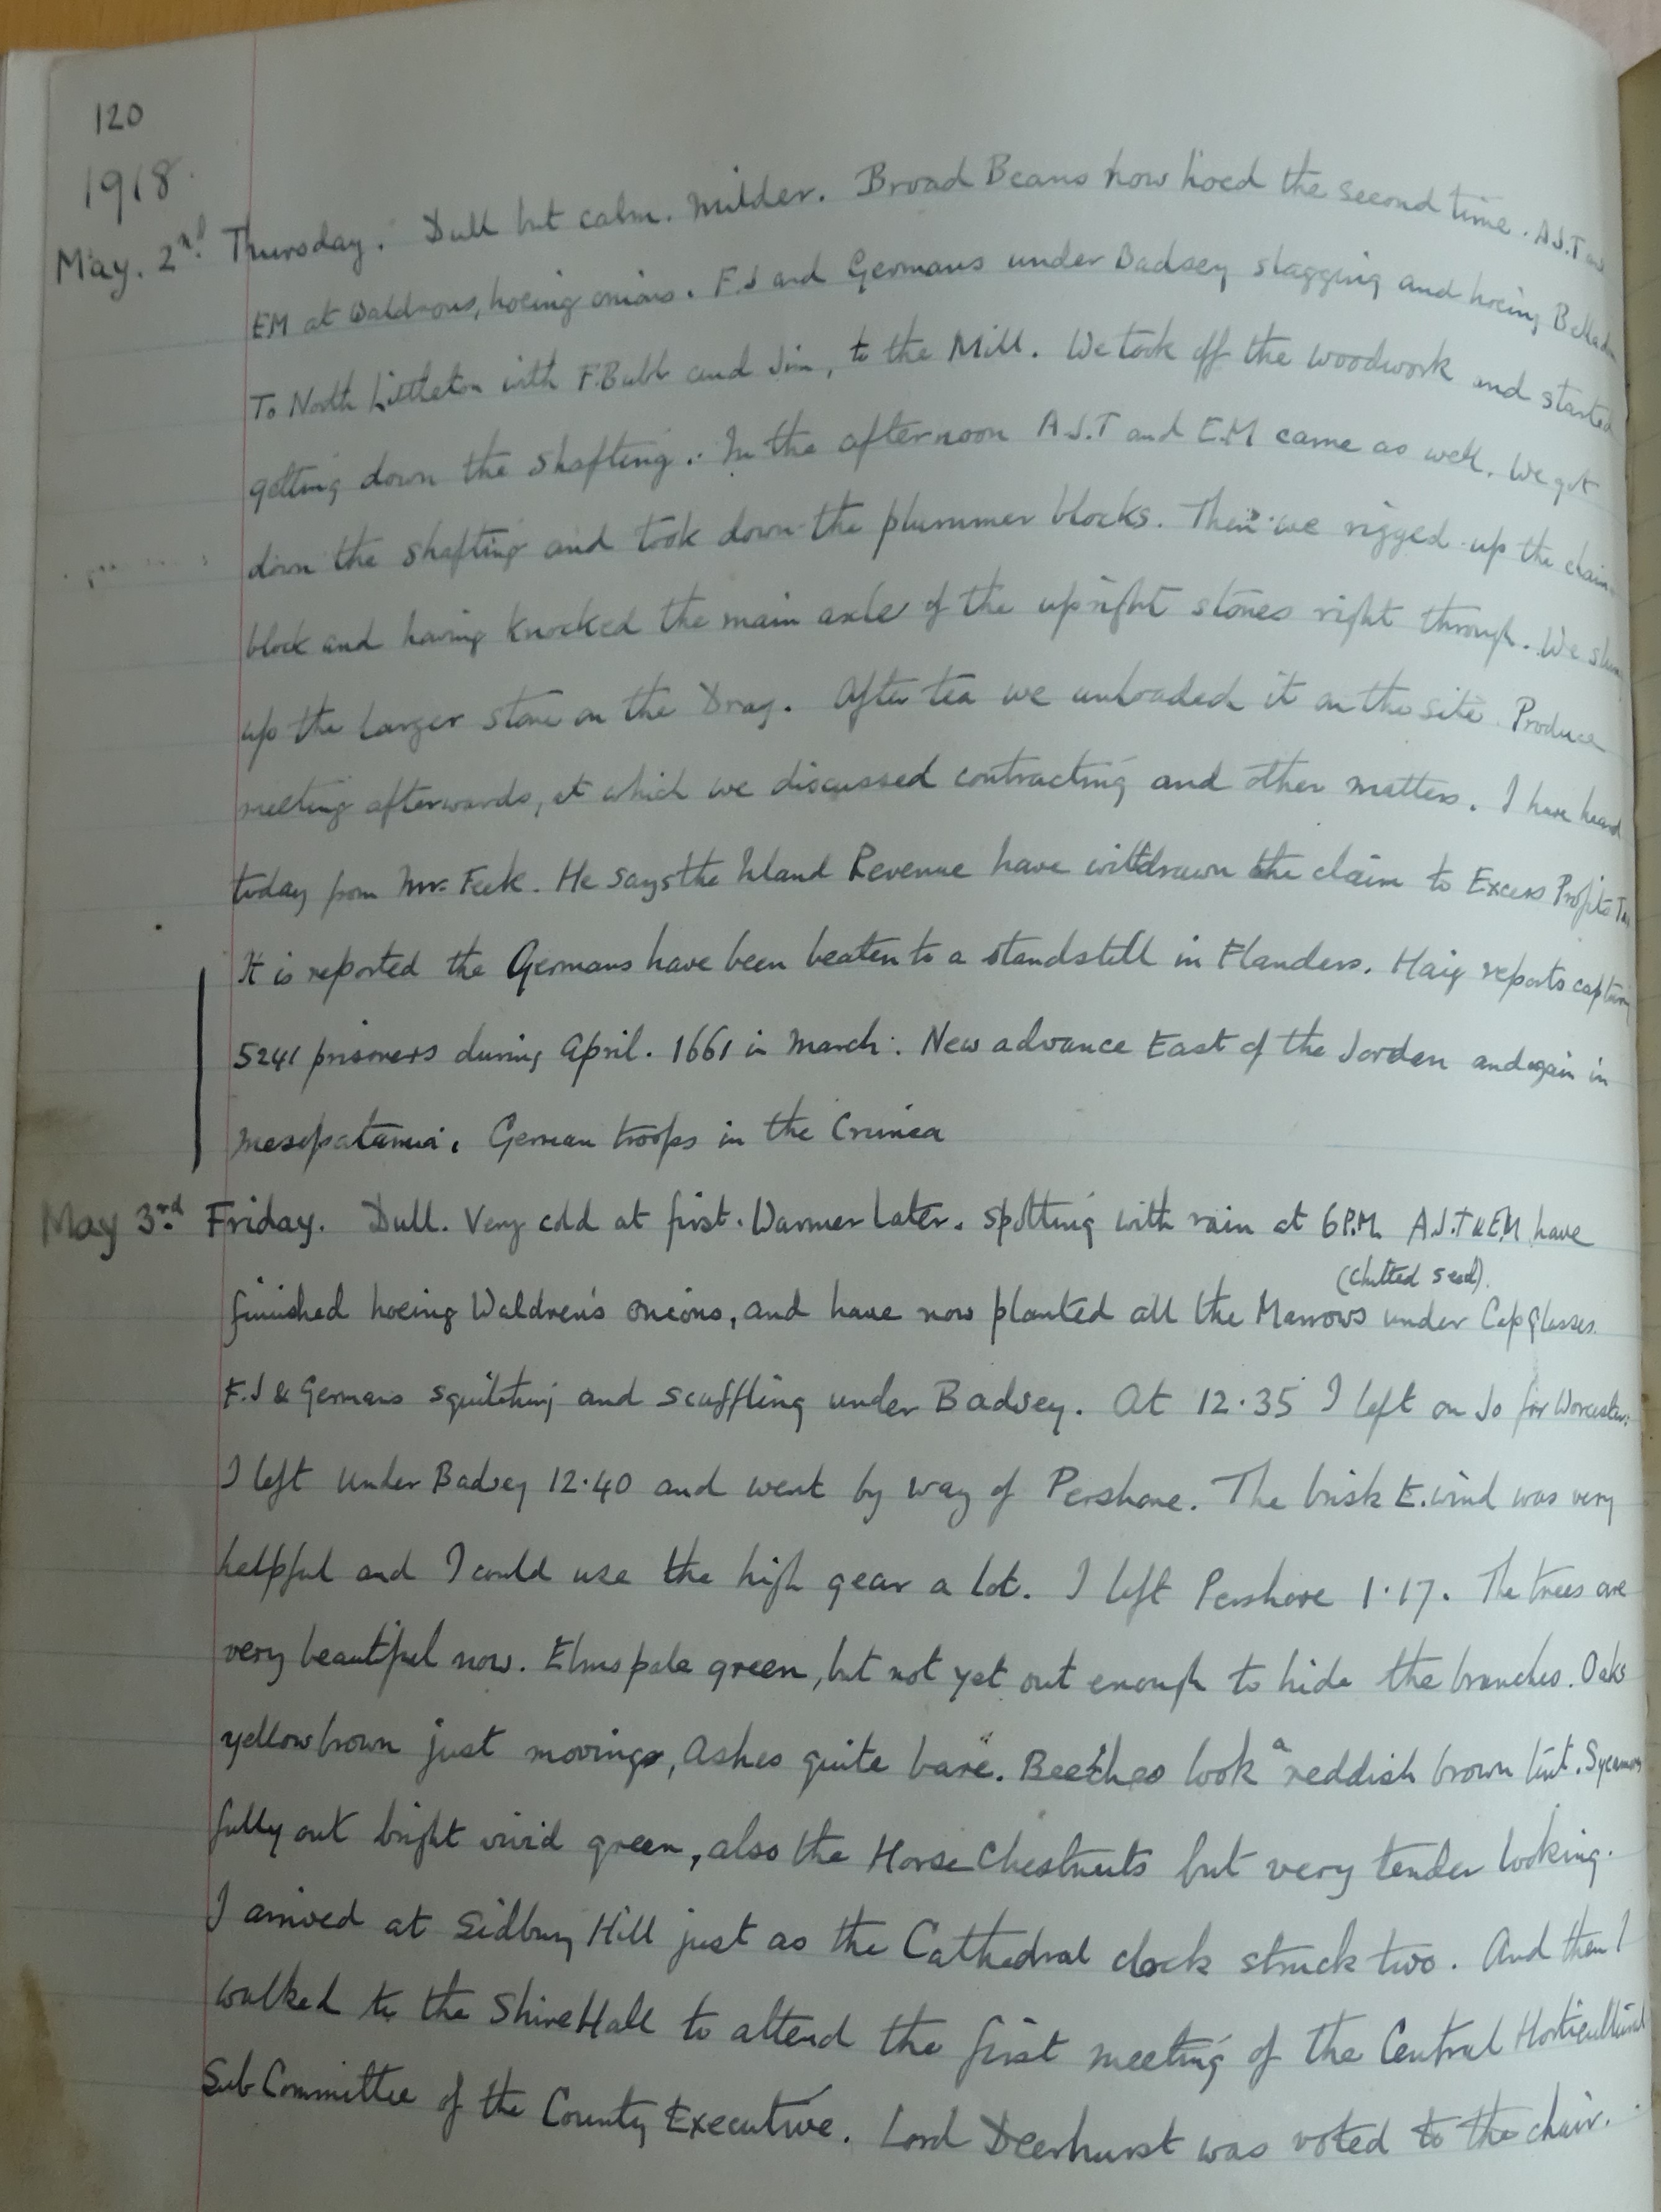 120
1918.
May. 2nd. Thursday. Dull but calm. Milder. Broad Beans now hoed the second time. A.J.T and
EM at Waldrons, hoeing onions. F.J and Germans under Badsey slagging and hoeing
To North Littleton with F. Bubb and Jim, to the Mill. We took off the woodwork and started
getting down the shafting. In the afternoon A.J.T and E.M came as well. We got
down the shafting and took down the plummer blocks. Then we rigged up the chain
block and having knocked the main axle of the upright stones right through. We slung
up the larger stone on the Dray. After tea we unloaded it on the site. Produce
meeting afterwards, at which we discussed contracting and other matters. I have heard
today from Mr. Feek. He says the Inland Revenue have withdrawn the claim to Excess Profits Tax
It is reported the Germans have been beaten to a standstill in Flanders. Haig reports capturing
5241 prisoners during April. 1661 in March. New advance East of the Jorden and again in
Mesopatamia. German troops in the Crimea
May 3rd. Friday. Dull. Very cold at first. Warmer later. Spotting with rain at 6 P.M. A.J.T & E.M have
(chitted seed).
finished hoeing Waldren's onions, and have now planted all the Marrows under Cap Glasses.
F.J & Germans squitching and scuffling under Badsey. At 12.35 I left on Jo for Worcester.
I left under Badsey 12.40 and went by way of Pershore. The brisk E. wind was very
helpful and I could use the high gear a lot. I left Pershore 1.17. The trees are
very beautiful now. Elms pale green, but not yet out enough to hide the branches. Oaks
yellow brown just moving, Ashes quite bare. Beeches look a reddish brown tint. Sycamores
fully out bright vivid green, also the Horse Chestnuts but very tender looking.
I arrived at Sidbury Hill just as the Cathedral clock struck two. And then I
walked to the Shire Hall to attend the first meeting of the Central Horticultural
Sub Committee of the County Executive. Lord Deerhurst was voted to the chair.